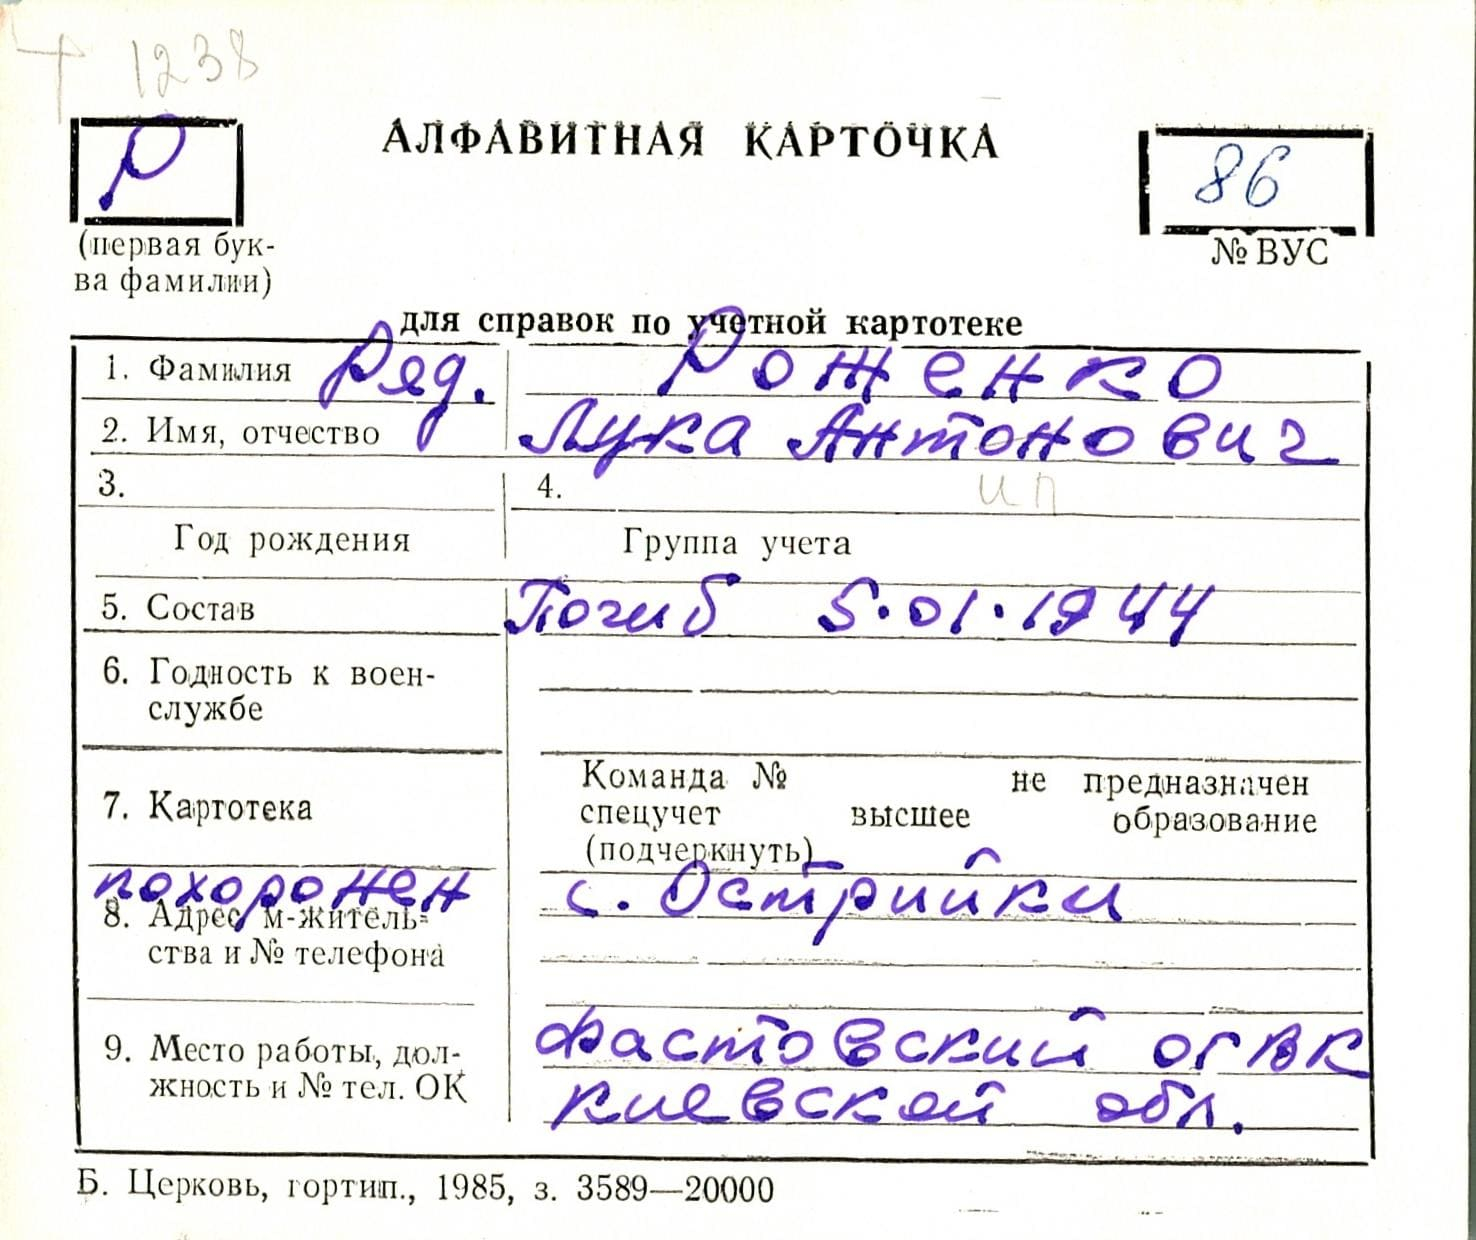 1238
Р
АЛФАВИТНАЯ КАРТОЧКА
86
(первая бук-
ва фамилии)
№ ВУС
для справок по учетной картотеке
1. Фамилия Ряд. Роженко
2. Имя, отчество Лука Антонович
3. 4. ип
Год рождения Группа учета
5. Состав Погиб 5.01.1944
6. Годность к воен-
службе
Команда № не предназначен
7. Картотека спецучет высшее образование
(подчеркнуть)
похоронен с. Острийки
8. Адрес м-житель-
ства и № телефона
Фастовский ОГВК
9. Место работы, дол-
жность и № тел. ОК Киевской обл.
Б. Церковь, гортип., 1985, з. 3589—20000